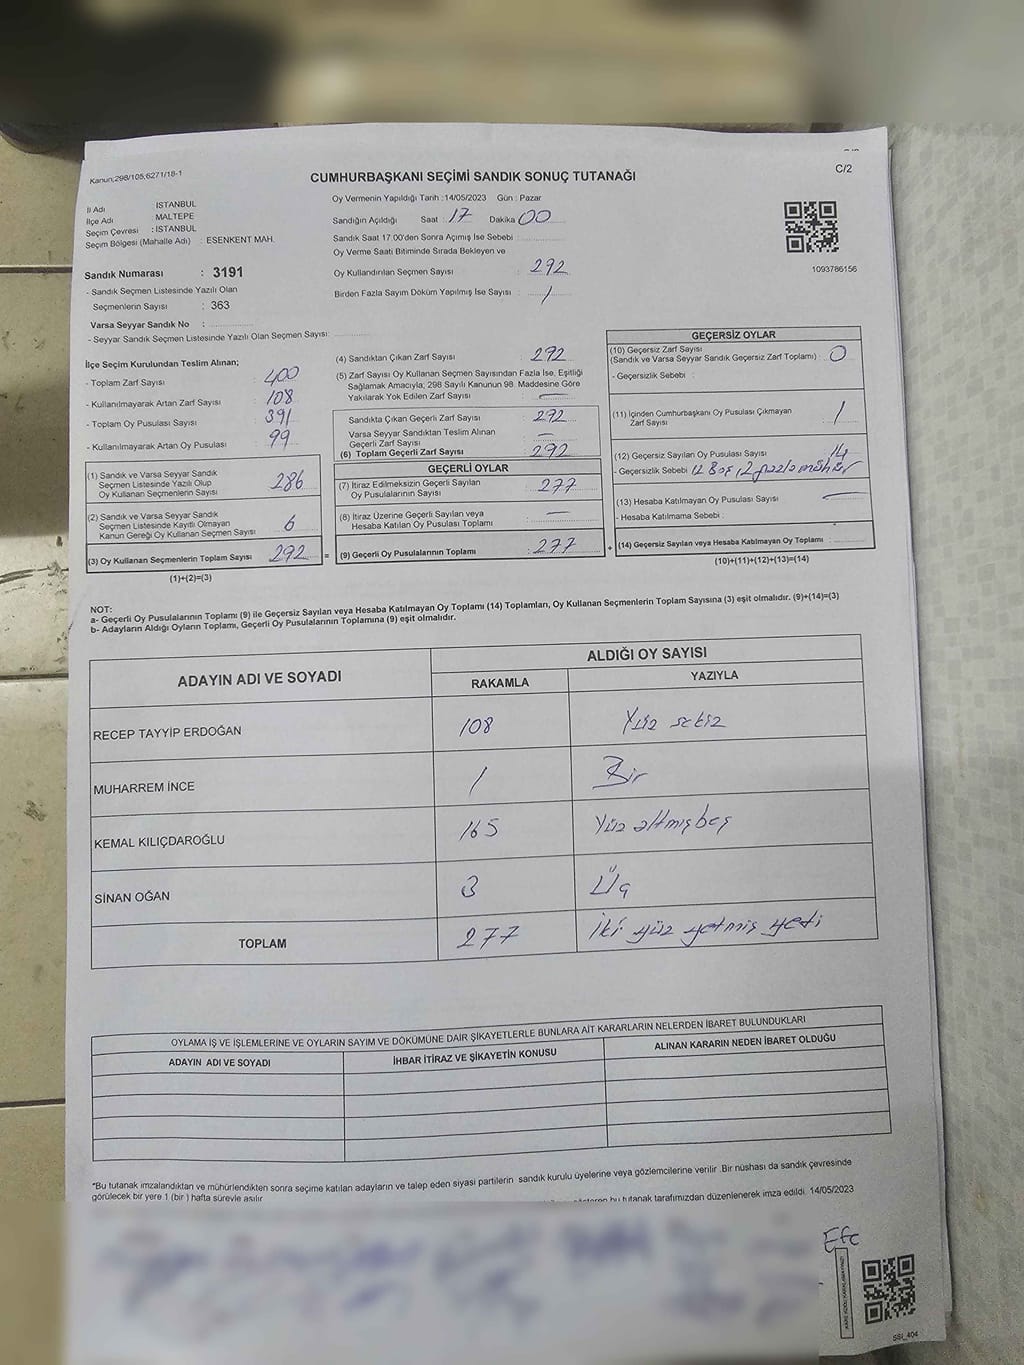 Kanun;298/105;6271/18-1
C/2
CUMHURBAŞKANI SEÇİMİ SANDIK SONUÇ TUTANAĞI
İl Adı İSTANBUL
İlçe Adı MALTEPE
Seçim Çevresi : İSTANBUL
Seçim Bölgesi (Mahalle Adı) : ESENKENT MAH.
Sandık Numarası : 3191
- Sandık Seçmen Listesinde Yazılı Olan
Seçmenlerin Sayısı : 363
Varsa Seyyar Sandık No :
- Seyyar Sandık Seçmen Listesinde Yazılı Olan Seçmen Sayısı:
Oy Vermenin Yapıldığı Tarih : 14/05/2023 Gün : Pazar
Sandığın Açıldığı Saat : 17 Dakika 00
Sandık Saat 17.00'den Sonra Açımış İse Sebebi :
Oy Verme Saati Bitiminde Sırada Bekleyen ve
Oy Kullandırılan Seçmen Sayısı : 292
Birden Fazla Sayım Döküm Yapılmış İse Sayısı : /
1093786156
İlçe Seçim Kurulundan Teslim Alınan;
- Toplam Zarf Sayısı 400
- Kullanılmayarak Artan Zarf Sayısı 108
- Toplam Oy Pusulası Sayısı 391
- Kullanılmayarak Artan Oy Pusulası 99
(1) Sandık ve Varsa Seyyar Sandık
Seçmen Listesinde Yazılı Olup
Oy Kullanan Seçmenlerin Sayısı 286
(2) Sandık ve Varsa Seyyar Sandık
Seçmen Listesinde Kayıtlı Olmayan
Kanun Gereği Oy Kullanan Seçmen Sayısı 6
(3) Oy Kullanan Seçmenlerin Toplam Sayısı 292 =
(1)+(2)=(3)
(4) Sandıktan Çıkan Zarf Sayısı : 292
(5) Zarf Sayısı Oy Kullanan Seçmen Sayısından Fazla İse, Eşitliği
Sağlamak Amacıyla; 298 Sayılı Kanunun 98. Maddesine Göre
Yakılarak Yok Edilen Zarf Sayısı : —
Sandıkta Çıkan Geçerli Zarf Sayısı : 292
Varsa Seyyar Sandıktan Teslim Alınan
Geçerli Zarf Sayısı : —
(6) Toplam Geçerli Zarf Sayısı : 292
GEÇERLİ OYLAR
(7) İtiraz Edilmeksizin Geçerli Sayılan
Oy Pusulalarının Sayısı : 277
(8) İtiraz Üzerine Geçerli Sayılan veya
Hesaba Katılan Oy Pusulası Toplamı : —
(9) Geçerli Oy Pusulalarının Toplamı : 277 +
GEÇERSİZ OYLAR
(10) Geçersiz Zarf Sayısı
(Sandık ve Varsa Seyyar Sandık Geçersiz Zarf Toplamı) : 0
- Geçersizlik Sebebi :
(11) İçinden Cumhurbaşkanı Oy Pusulası Çıkmayan
Zarf Sayısı : /
(12) Geçersiz Sayılan Oy Pusulası Sayısı : 14
- Geçersizlik Sebebi 12 Boş, 2 fazla mühür
(13) Hesaba Katılmayan Oy Pusulası Sayısı : —
- Hesaba Katılmama Sebebi :
(14) Geçersiz Sayılan veya Hesaba Katılmayan Oy Toplamı :
(10)+(11)+(12)+(13)=(14)
NOT:
a- Geçerli Oy Pusulalarının Toplamı (9) ile Geçersiz Sayılan veya Hesaba Katılmayan Oy Toplamı (14) Toplamları, Oy Kullanan Seçmenlerin Toplam Sayısına (3) eşit olmalıdır. (9)+(14)=(3)
b- Adayların Aldığı Oyların Toplamı, Geçerli Oy Pusulalarının Toplamına (9) eşit olmalıdır.
ADAYIN ADI VE SOYADI ALDIĞI OY SAYISI
RAKAMLA YAZIYLA
RECEP TAYYİP ERDOĞAN 108 Yüz sekiz
MUHARREM İNCE 1 Bir
KEMAL KILIÇDAROĞLU 165 Yüz altmışbeş
SİNAN OĞAN 3 Üç
TOPLAM 277 İki yüz yetmiş yedi
OYLAMA İŞ VE İŞLEMLERİNE VE OYLARIN SAYIM VE DÖKÜMÜNE DAİR ŞİKAYETLERLE BUNLARA AİT KARARLARIN NELERDEN İBARET BULUNDUKLARI
ADAYIN ADI VE SOYADI İHBAR İTİRAZ VE ŞİKAYETİN KONUSU ALINAN KARARIN NEDEN İBARET OLDUĞU
*Bu tutanak imzalandıktan ve mühürlendikten sonra seçime katılan adayların ve talep eden siyasi partilerin sandık kurulu üyelerine veya gözlemcilerine verilir. Bir nüshası da sandık çevresinde
görülecek bir yere 1 (bir) hafta süreyle asılır
bu tutanak tarafımızdan düzenlenerek imza edildi. 14/05/2023
Efe
SSİ_404